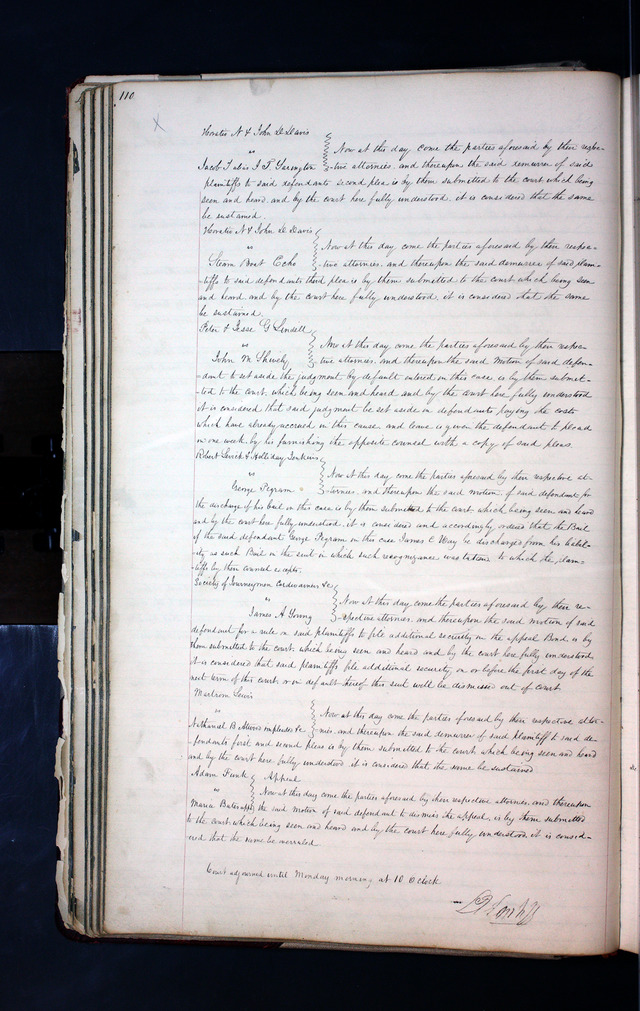 110
X
Horatio N & John D Davis
vs
Now at this day come the parties aforesaid by their respec-
Jacob T alias I. T. Yarington
-tive attornies, and thereupon the said demurrer of said
plaintiffs to said defendants second plea is by them submitted to the court which being
seen and heard, and by the court here fully understood, it is considered that the same
be sustained.
Horatio N & John D Davis
vs
Now at this day, come the parties aforesaid by their respec-
Steam Boat Echo
-tive attornies, and thereupon the said demurrer of said plain-
-tiffs, to said defendants third plea is by them submitted to the court which being seen
and heard, and by the court here fully understood, it is considered that the same
be sustained.
Peter & Jesse G Lindell
vs
Now at this day, come the parties aforesaid by their respec-
John M
-tive attornies, and thereupon the said motion of said defen-
-dant to set aside the judgment by default entered in this case, is by them submit-
-ted to the court, which being seen and heard, and by the court here fully understood
it is considered that said judgment be set aside on defendants paying the costs
which have already accrued in this cause, and leave is given the defendant to plead
in one week by his furnishing the opposite counsel with a copy of said pleas.
Robert & Holliday Jenkins
vs
Now at this day, come the parties aforesaid by their respective at-
George Pegram
-tornies, and thereupon the said motion, of said defendant for
the discharge of his bail in this case is by them submitted to the court which being seen and heard
and by the court here fully understood, it is considered and accordingly ordered that the Bail
of the said defendant George Pegram in this case James C Way be discharged from his liabil-
ity as such Bail in the suit in which such recognizance was taken to which the plain-
tiffs by their counsel excepts.
Society of Journeymen Cordwainers &c
vs
Now at this day come the parties aforesaid by their re-
James A Young
-spective attornies, and thereupon the said motion of said
defendant for a rule on said plaintiffs to file additional security on the appeal Bond, is by
them submitted to the court; which being seen and heard and by the court here fully understood,
it is considered that said plaintiffs file additional security on or before the first day of the
next term of this court, or in default thereof this suit will be dismissed out of court
Lewis
vs
Now at this day come the parties aforesaid by their respective attor-
Nathaniel B impleaded &c
-nies, and thereupon the said demurrer of said plaintiff to said de-
-fendants first and second pleas is by them submitted to the court, which being seen and heard
and by the court here fully understood, it is considered that the same be sustained
Adam Funk
Appeal
vs
Now at this day come the parties aforesaid by their respective attornies, and thereupon
Maria
the said motion of said defendant to dismiss the appeal, is by them submitted
to the court which being seen and heard and by the court here fully understood, it is consid-
-ered that the same be overruled
Court adjourned until Monday morning at 10 Oclock